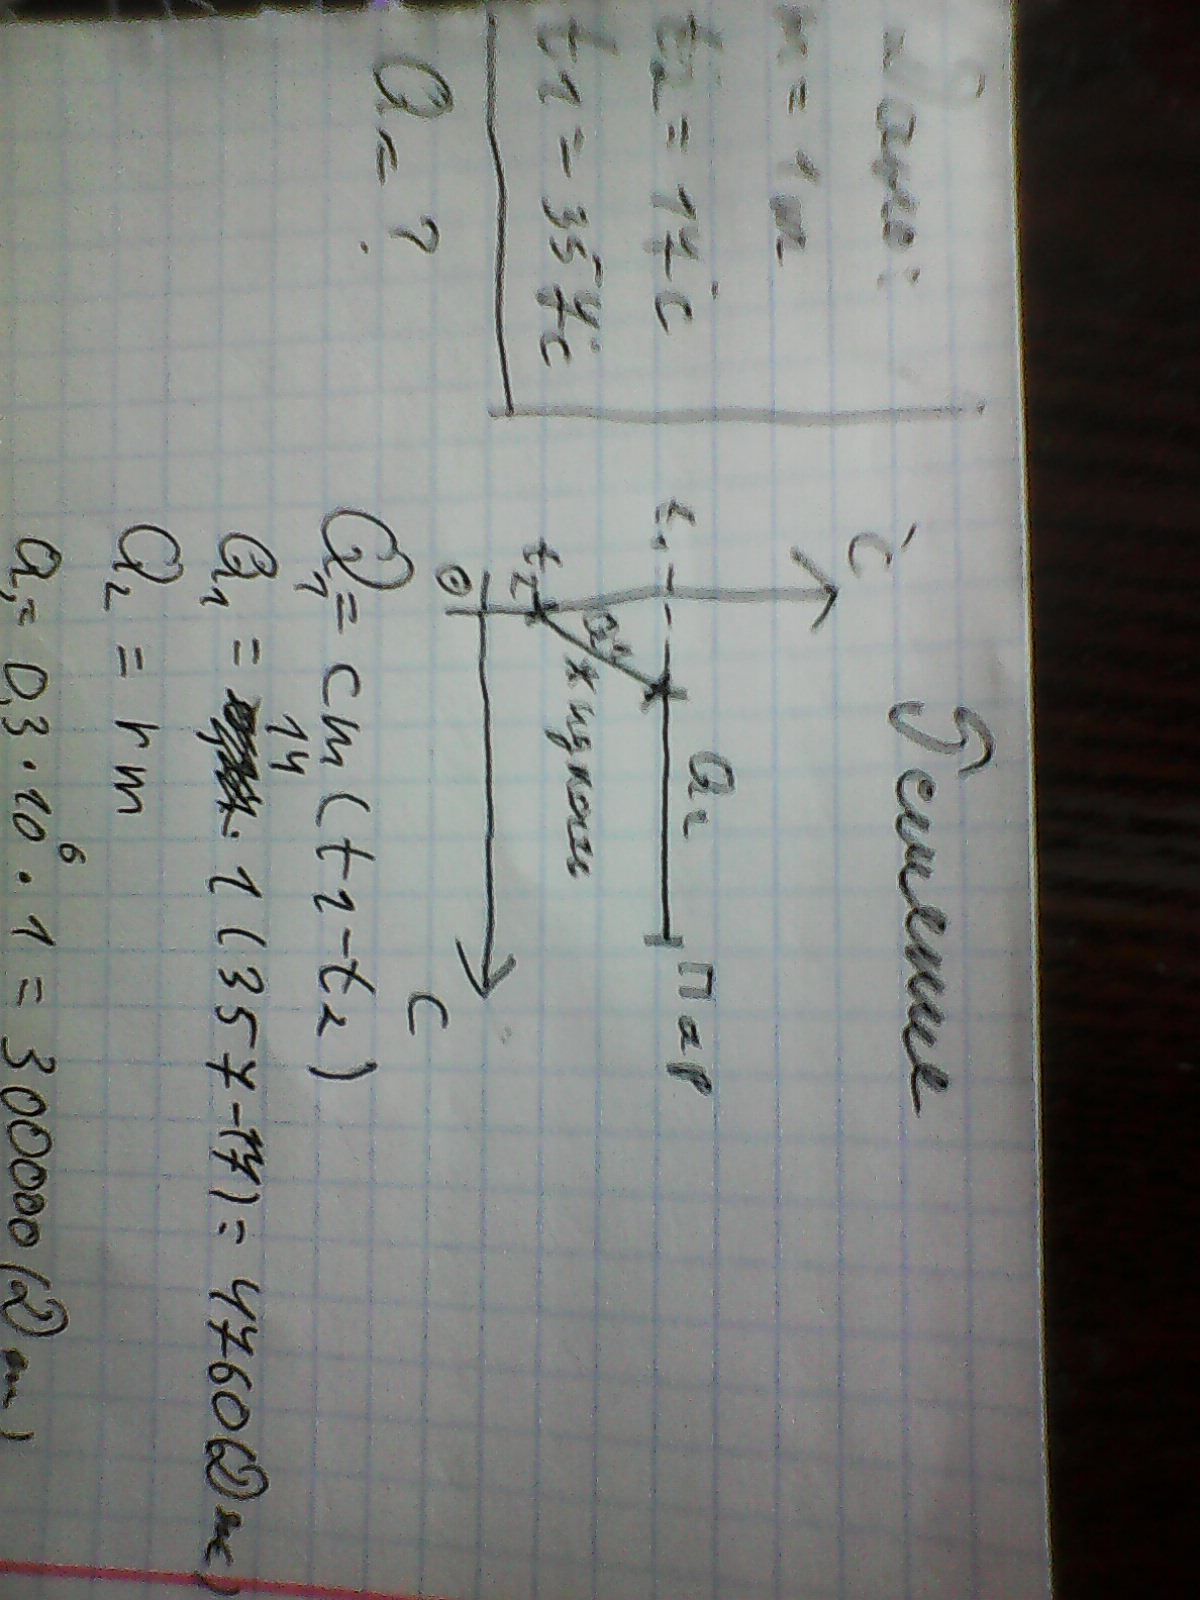 Дано:
m = 1 т
t2 = 17°C
t1 = 357°C
Q = ?
Решение
°C
t1
Q2
Пар
t2
Q1
жидкость
0
C
Q1 = cm (t1 - t2)
Q1 = 14 · 1 (357 - 17) = 4760 (Дж)
Q2 = rm
Q1 = 0,3 · 10⁶ · 1 = 300000 (Дж)